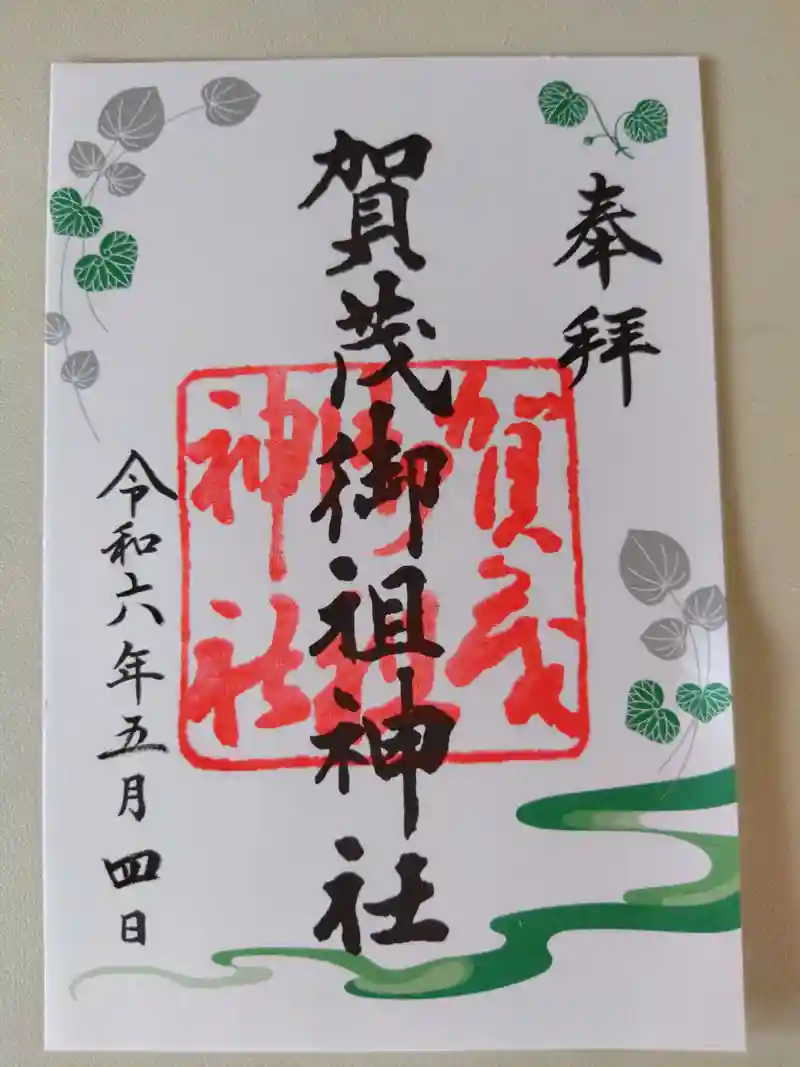 奉拝
賀茂御祖神社
賀茂御祖神社
令和六年五月四日